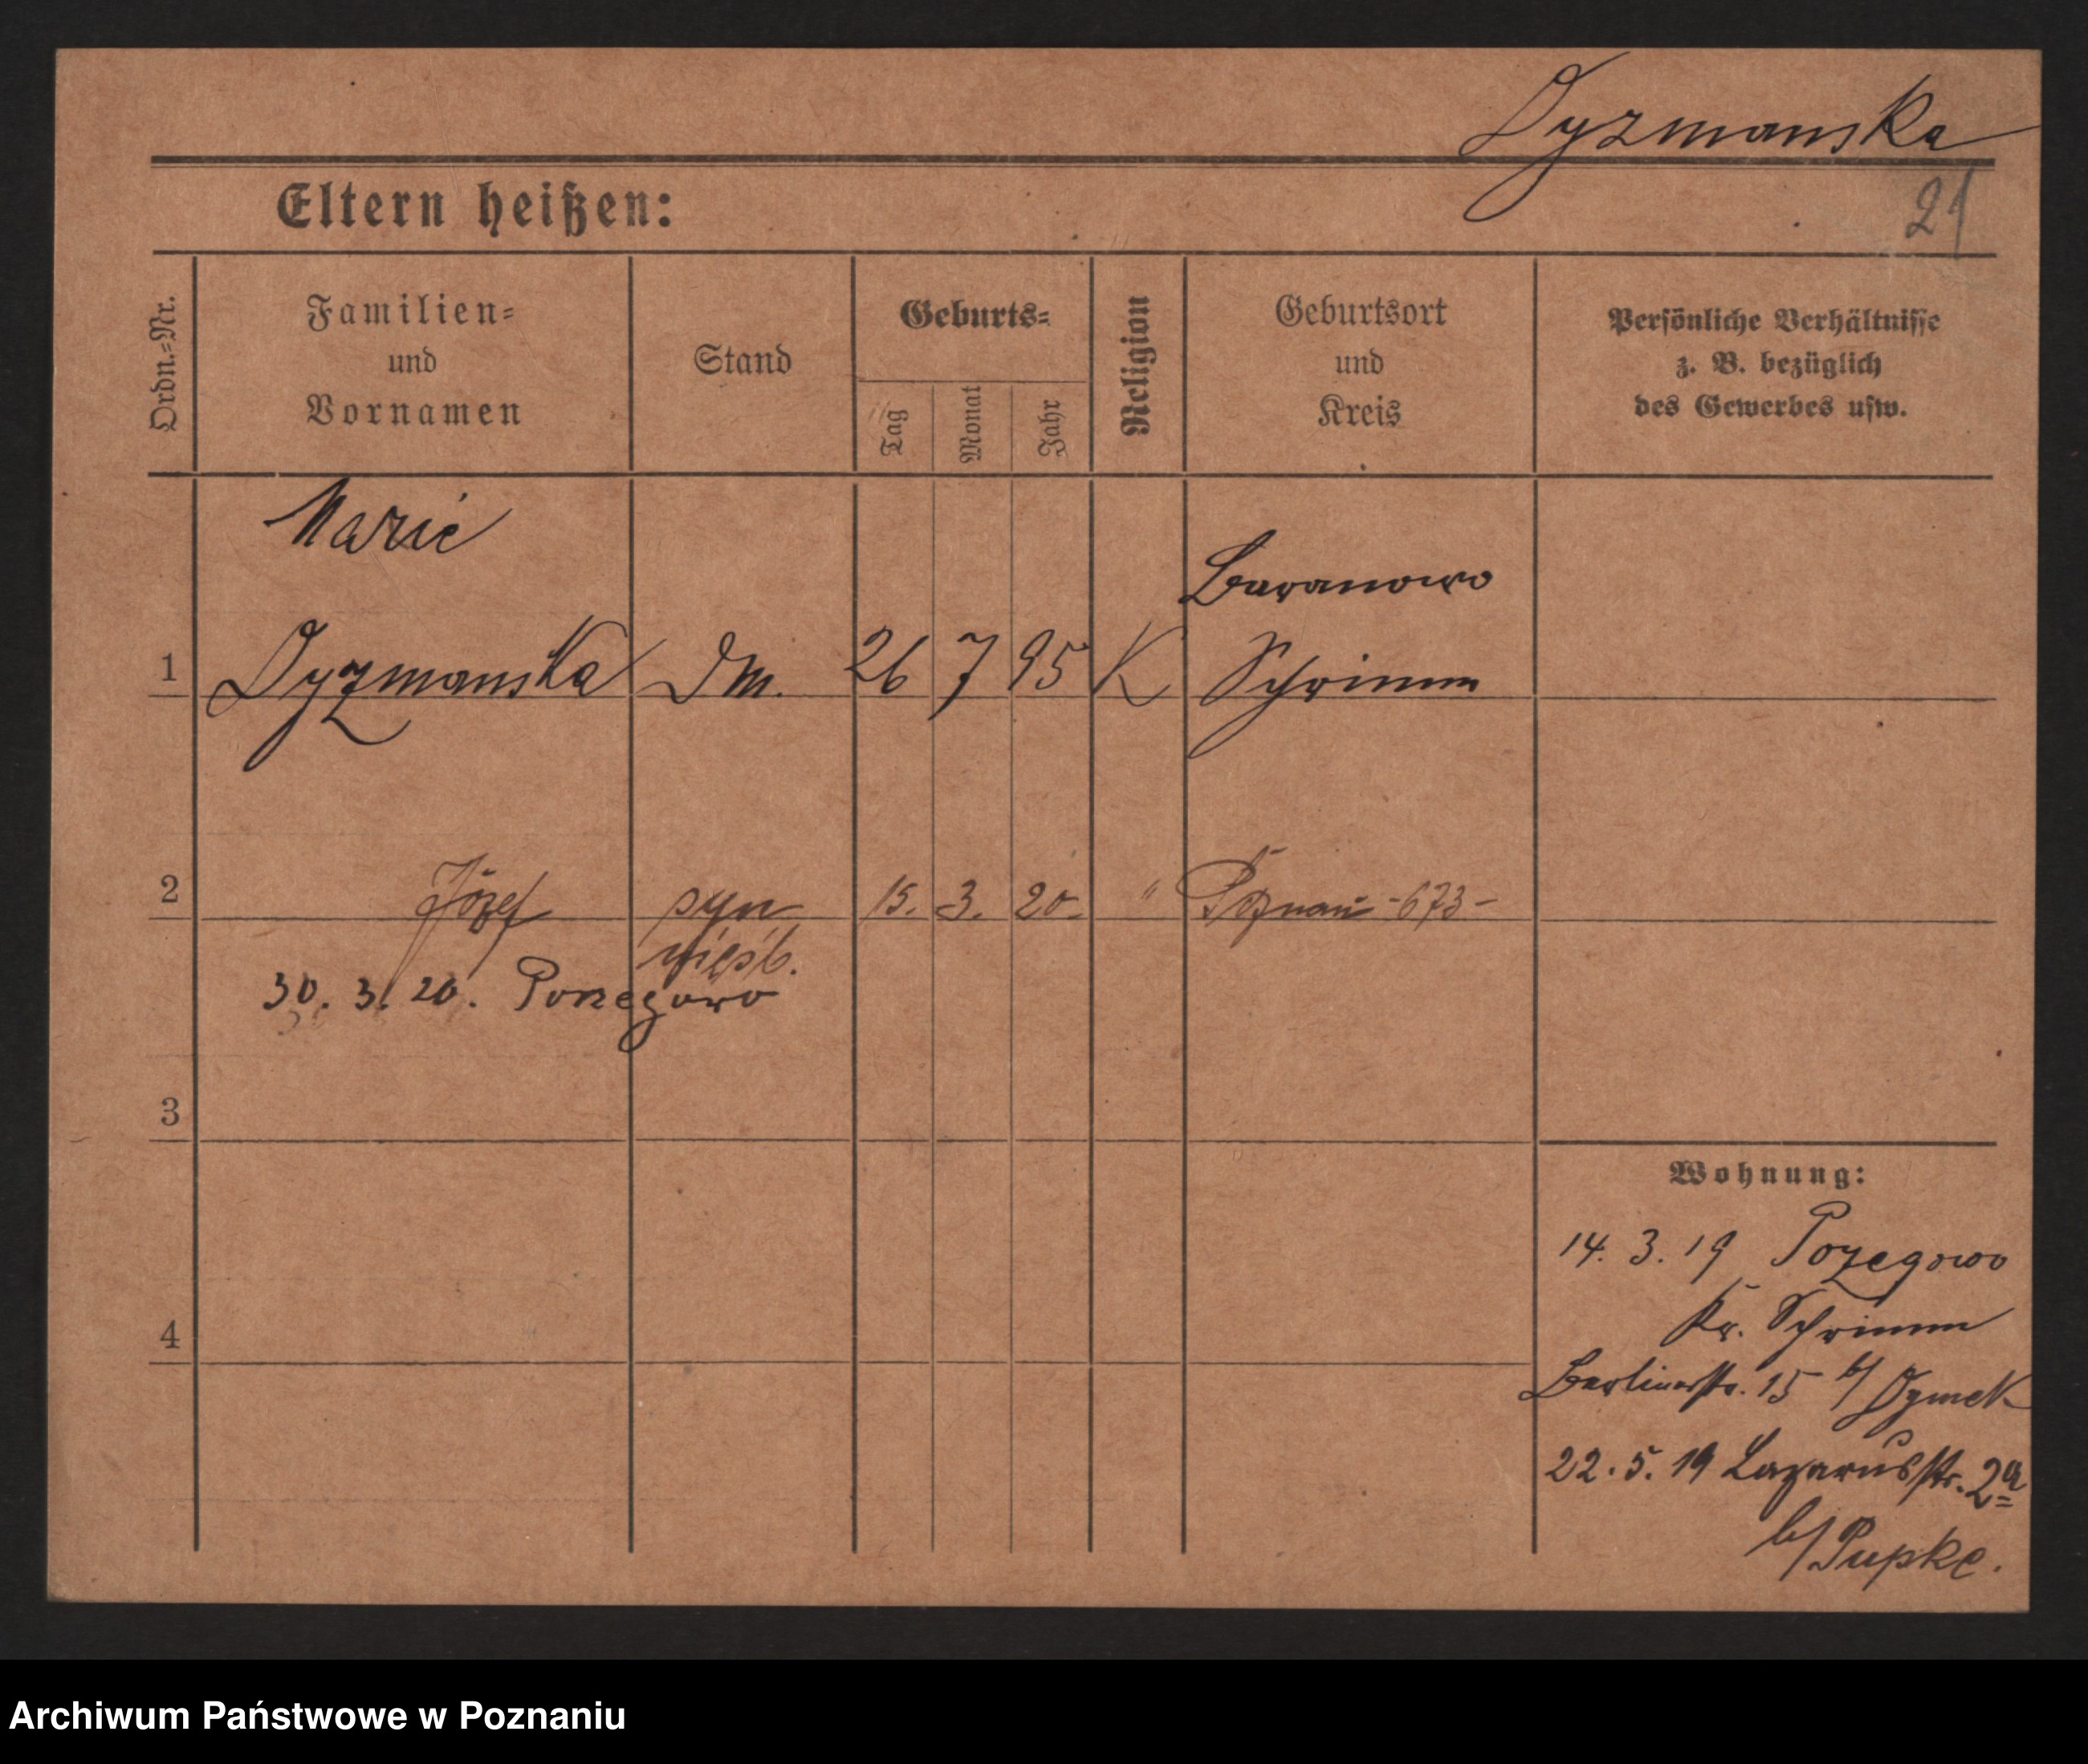 Dyzmanska
Eltern heißen:
21
Ordn.-Nr.
Familien-
und
Vornamen
Stand
Geburts-
Tag
Monat
Jahr
Religion
Geburtsort
und
Kreis
Persönliche Verhältnisse
z. B. bezüglich
des Gewerbes usw.
Marie
Baranowo
1 Dyzmanska DM. 26 7 95 K Schrimm
2 Józef syn 15. 3. 20. " Poznań -673-
nieśl.
30. 3. 20. Pozegowo
3
Wohnung:
14. 3. 19 Pozegowo
Kr. Schrimm
4
Berlinerstr. 15 b/ Dymek
22. 5. 19 Lazarusstr. 2a
b/ Pupke.
Archiwum Państwowe w Poznaniu